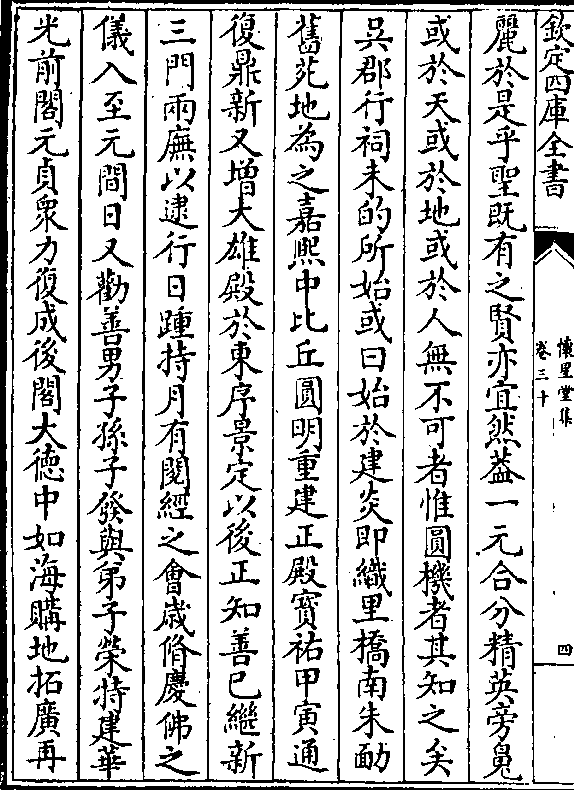 欽定四庫全書
懷星堂集
卷三十
四
麗於是乎聖既有之賢亦宜然葢一元合分精英旁鬼
或於天或於地或於人無不可者惟圓機者其知之矣
吳郡行祠未的所始或曰始於建炎即織里橋南朱勔
舊苑地為之嘉熙中比丘圓明重建正殿寳祐甲寅通
復鼎新又增大雄殿於東序景定以後正知善已繼新
三門兩廡以逮行日踵持月有閱經之會歳脩慶佛之
儀入至元間日又勸善男子孫子發與弟子榮特建華
光前閣元貞衆力復成後閣大徳中如海購地拓廣再